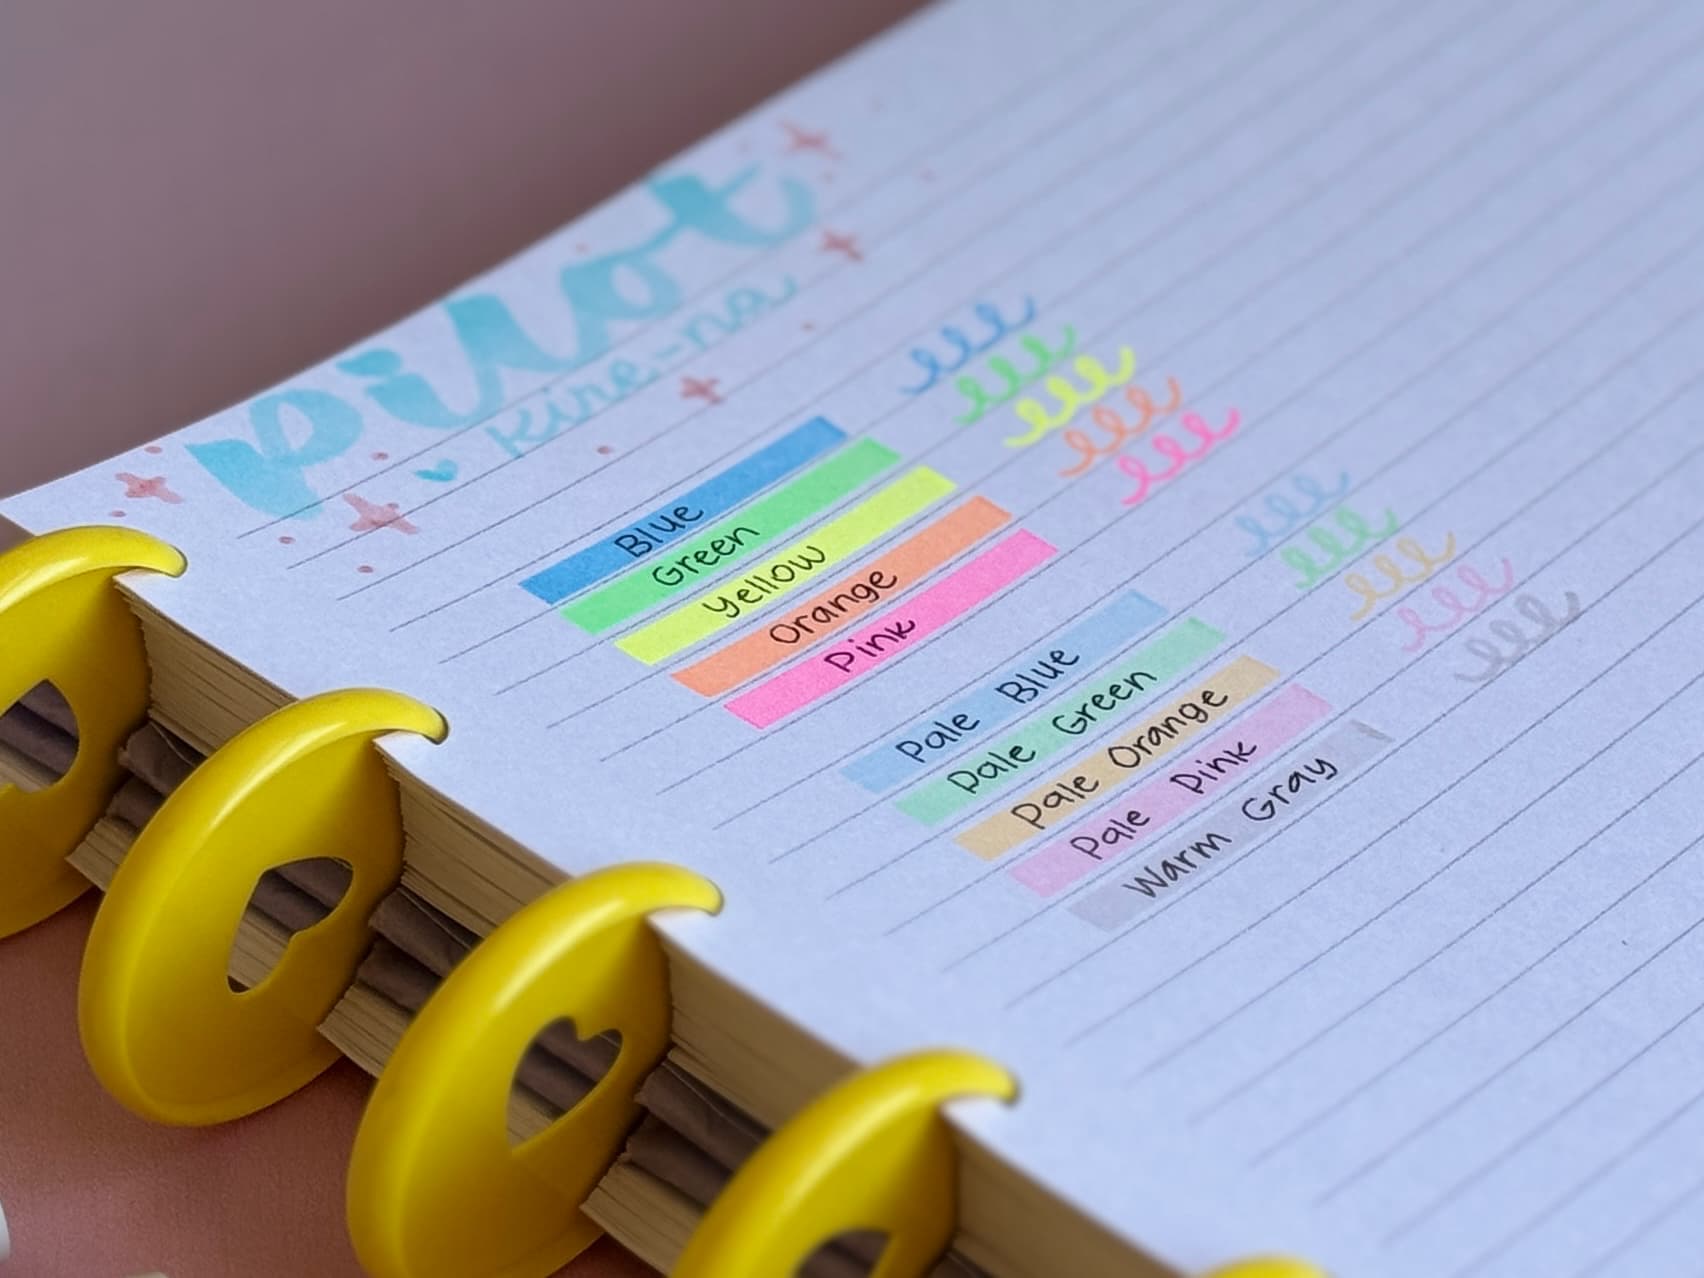 pilot
kire-na
Blue
Green
Yellow
Orange
Pink
Pale Blue
Pale Green
Pale Orange
Pale Pink
Warm Gray